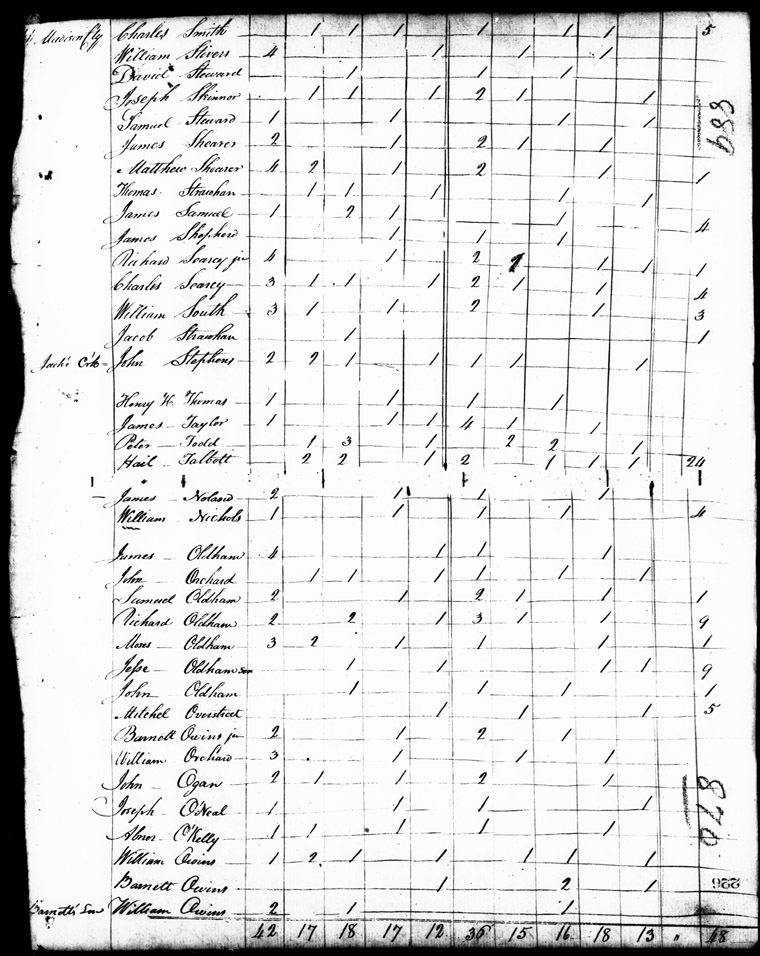 Madison Cty Charles Smith 1 1 1 1 1 1 5
William Stivers 4 1 1 1
David Steward 1 1 1
Joseph Skinnor 1 1 1 2 1 1
Samuel Steward 1 1 1 1
James Shearer 2 1 2 1 1
889
Matthew Shearer 4 2 1 2 1 1
Thomas Strawhan 1 1 1 1 1
James Samuel 1 2 1 1 4
James Shepherd 1 1 1
Richard Searcy jr 4 1 2 1 1 1
Charles Searcy 3 1 1 1 2 1 1 4
William South 3 1 1 2 1 3
Jacob Strawhan 1 1
Jack's Crk John Stephens 2 2 1 1 1 1 1
Henry H. Thomas 1 1 1 1
James Taylor 1 1 1 4 1 1
Peter Todd 1 3 1 2 2 1
Hail Talbott 2 2 1 2 1 1 1 24
James Noland 2 1 1 1
William Nichols 1 1 1 1 4
James Oldham 4 1 1 1
John Orchard 1 1 1 1 1 1
Samuel Oldham 2 1 2 1 1 1
Richard Oldham 2 2 1 3 1 1 9
Moses Oldham 3 2 1 1 1 1
Jesse Oldham Sen 1 1 1 1 9
John Oldham 1 1 1 1
Mitchel Overstreet 1 1 1 5
Barnett Owins jr 2 1 2 1
William Orchard 3 1 1 1
John Ogan 2 1 1 2 1
870
Joseph O'Neal 1 1 1 1
Abner O'Kelly 1 1 1 1 1
William Owins 1 2 1 1 1 1 1
Barnett Owins 1 2 1
226
Barnetts Son William Owins 2 1 1
42 17 18 17 12 36 15 16 18 13 " 48